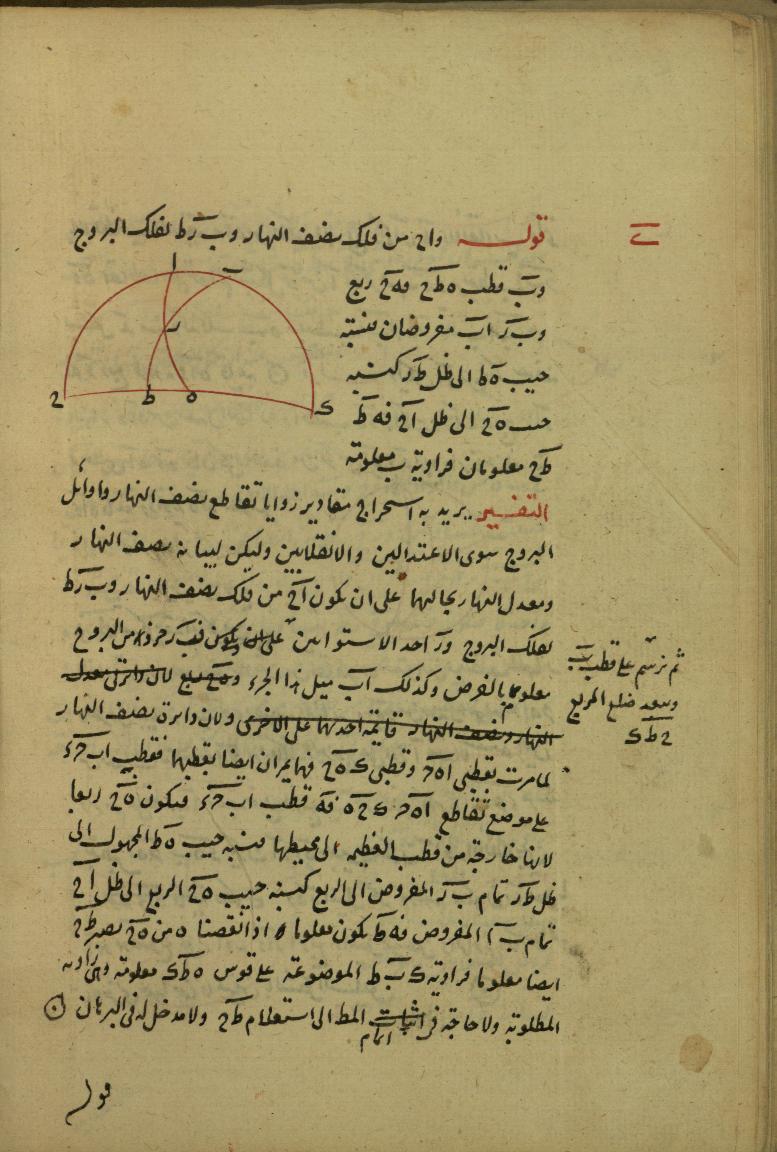 ى
قوله واح من فلك نصف النهار وب رط لفلك البروج
وب قطب ه ط ح فه ح ربع
وب ر اب مفروضان فنسبة
جيب ه ط الى ظل ط ر كنسبة
جيب ه ح الى ظل اح فه ط
ط ح معلومان فزاوية ب معلومة
ا
ب
ر
ح
ط
ه
ى
التفسير يريد به استخراج مقادير زوايا تقاطع نصف النهار واوائل
البروج سوى الاعتدالين والانقلابين وليكن لبيانه نصف النهار
ومعدل النهار بحالهما على ان يكون اح من فلك نصف النهار وب رط
لفلك البروج ور احد الاستوائين على ان يكون قوس جزؤا من البروج
معلوما بالفرض وكذلك اب ميل هذا الجزء و لان دائرتى معدل
النهار ونصف النهار قائمة احدهما على الاخرى ولان دائرة نصف النهار
لما مرت بقطبى وقطبى فهما يمران ايضا بقطبها فقطب
على موضع تقاطع فه قطب فيكون ه ح ربعا
لانها خارجة من قطب العظيمة الى محيطها فنسبة جيب ه ط المجهول الى
ظل ط ر تمام ب ر المفروض الى الربع كنسبة جيب ه ح الربع الى ظل اح
تمام ب ا المفروض فه ط يكون معلوما و اذا نقصنا ه من ه ح يصير ط ح
ايضا معلوما فزاوية ى ب ط الموضوعة على قوس ه ط ى معلومة وهى الزاوية
المطلوبة ولا حاجة فى اثبات اتمام المط الى استعلام ط ح ولا مدخل له فى البرهان
ثم نرسم على قطب ب
وببعد ضلع المربع
ح ط ى
قول